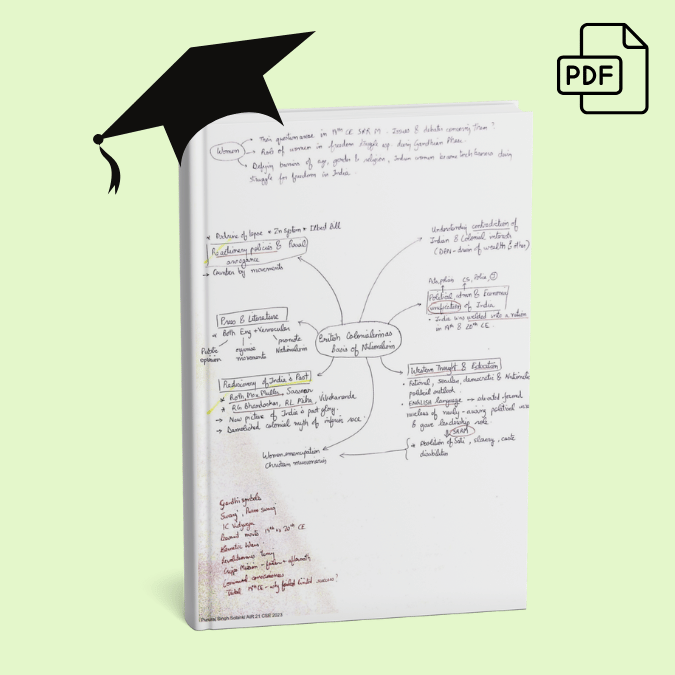 PDF
Women
Their question arose in 19th CE SRRM. Issues & debates concerning Them?
Role of women in freedom struggle esp. during Gandhian Phase.
Defying barriers of age, gender & religion, Indian women became torch-bearers during
struggle for freedom in India.
Lapse
Ilbert Bill
Reactionary policies & Racial
arrogance
→ Counter by movements
Understanding contradiction of
Indian & Colonial interests
(DBN-drain of wealth & other)
Political, admn & Economic
unification of India
• India was welded into a nation
in 19th & 20th CE
Press & Literature
Both Eng + Vernacular
Public
opinion
organise
movements
promote
Nationalism
British Colonialism as
basis of Nationalism
Western Thought & Education
• Rational, secular, democratic & Nationalist
political outlook.
• English language →
nucleus of newly-arising political
& gave leadership role.
SRRM
Abolition of Sati, slavery, caste
disabilities
Rediscovery of India's Past
Roth, Max Muller, Sassoon
RG Bhandarkar, RL Mitra, Vivekananda
→ New picture of India's past glory.
→ Demolished colonial myth of inferior race.
Women emancipation
Christian missionaries
Gandhi symbols
Swaraj, Purna swaraj
IC Vidyasagar
Peasant mvts 19th vs 20th CE
Carnatic Wars
Revolutionary Terr
Cripps Mission - failure + aftermath
Communal consciousness
Tribal 19th CE - why failed limited success?
CSE 2023